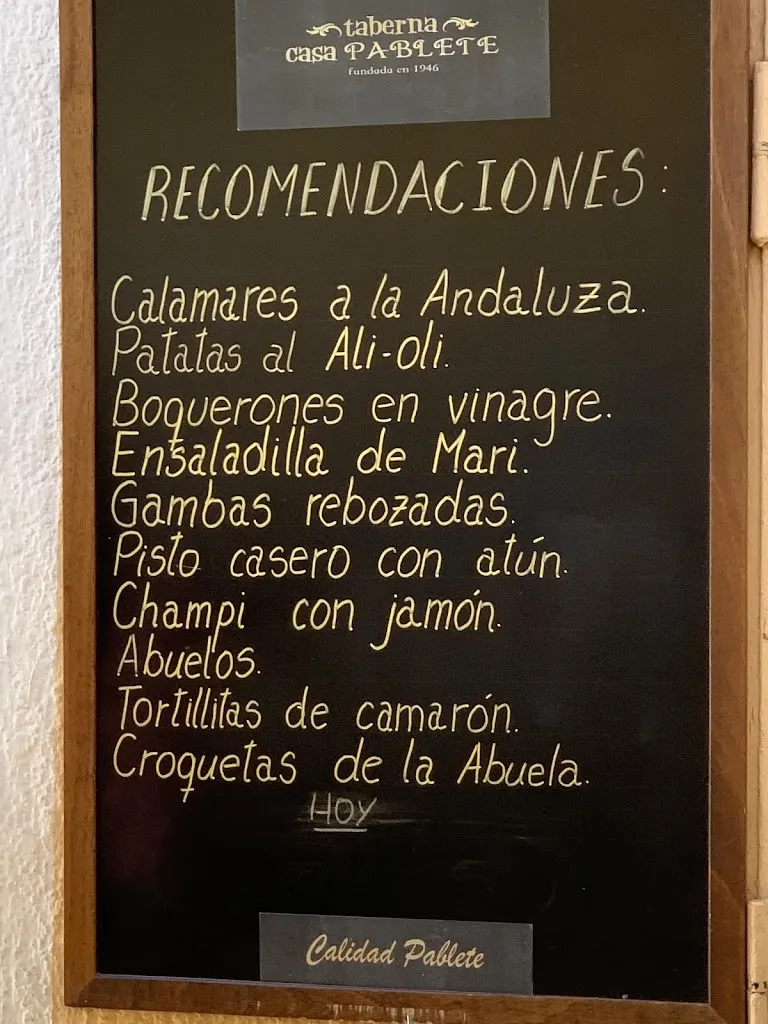 taberna
casa PABLETE
fundada en 1946
RECOMENDACIONES:
Calamares a la Andaluza.
Patatas al Ali-oli.
Boquerones en vinagre.
Ensaladilla de Mari.
Gambas rebozadas.
Pisto casero con atún.
Champi con jamón.
Abuelos.
Tortillitas de camarón.
Croquetas de la Abuela.
HOY
Calidad Pablete